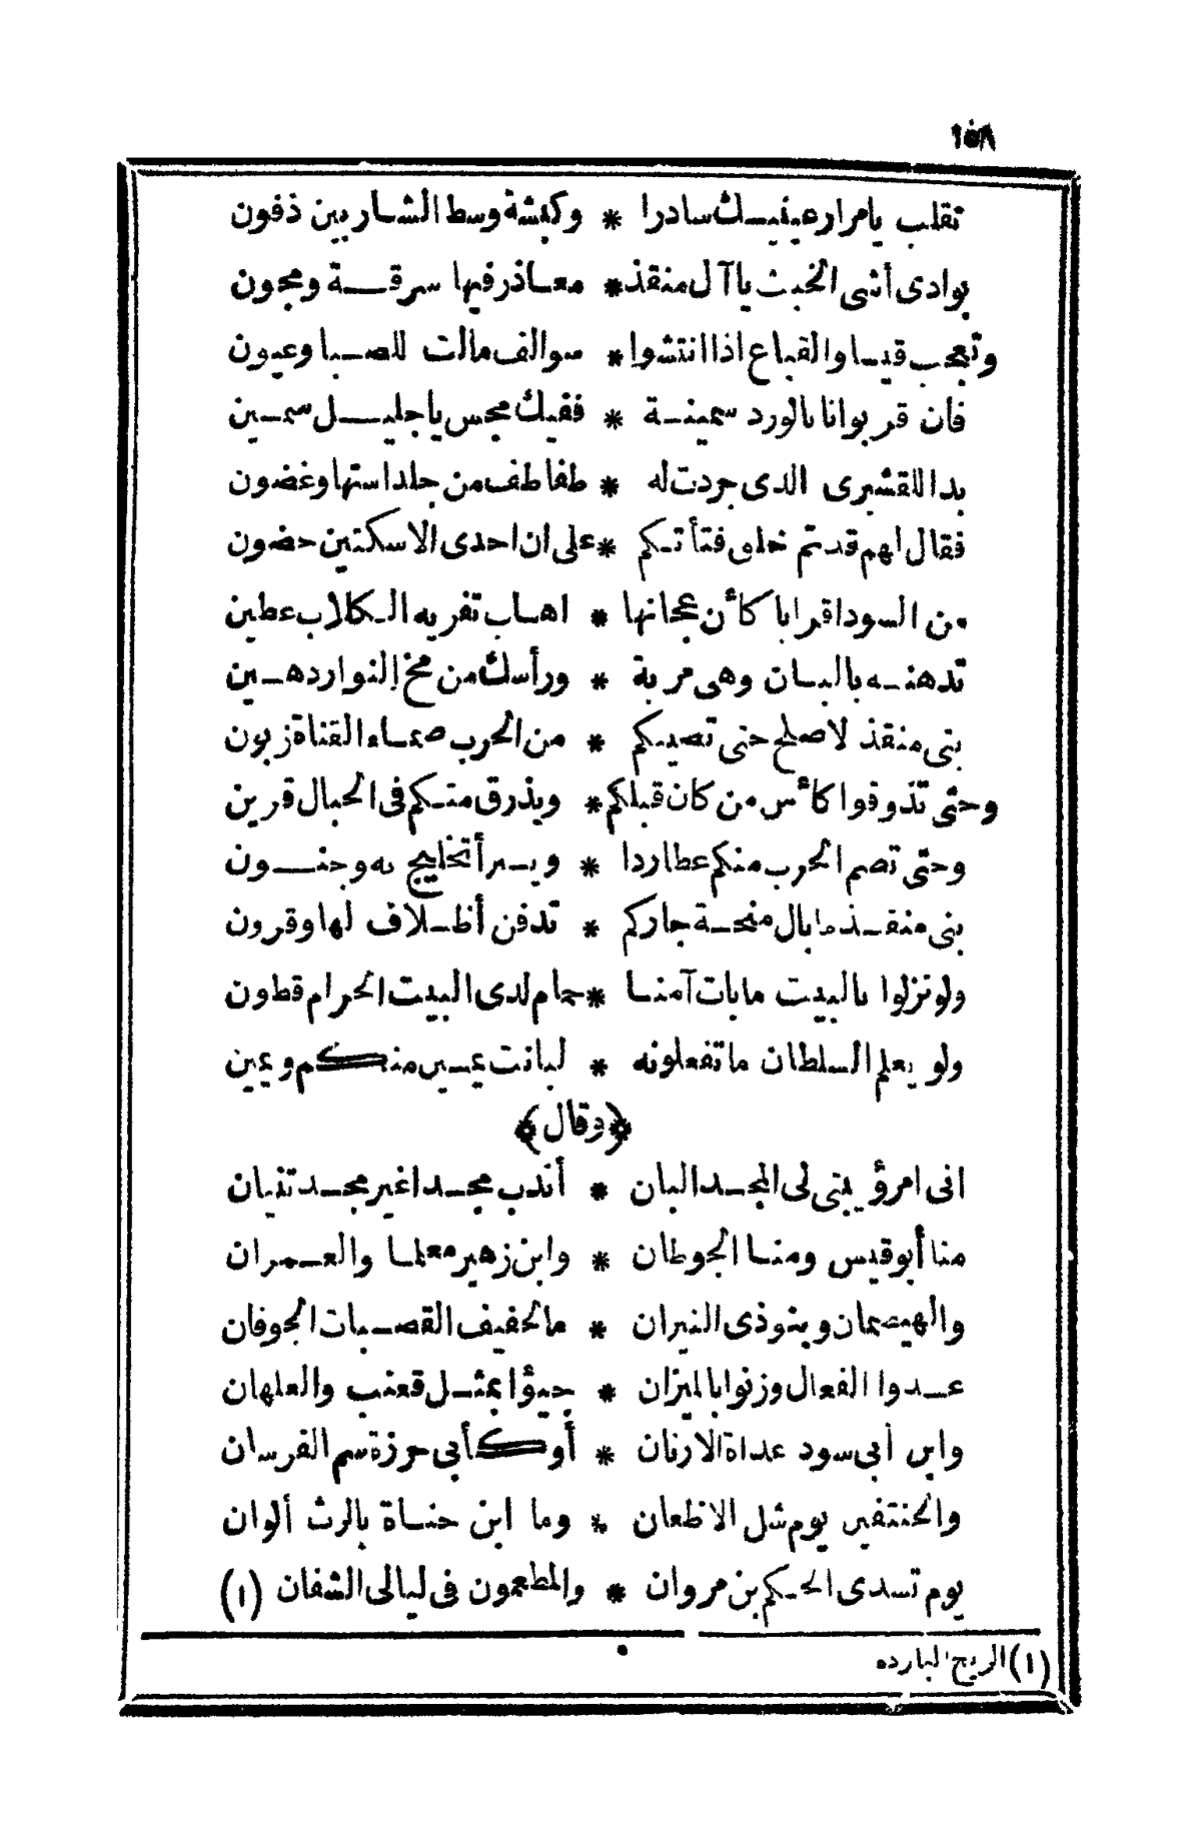 ١٥٨
تقلب يامرار عينيك سادرا * وكبشة وسط الشاربين ذفون
بوادى أشى الخبث يا آل منقذ * معاذر فيها سرقة ومجون
وتعجب قيسا والقباع اذا انتشوا * سوالف مالت للصبا وعيون
فان قربوانا بالورد سمينة * ففيك مجس يا جليل سمين
بدا للقشيرى الذى جردت له * طفاطف من جلد استها وغضون
فقال لهم قد تم خلق فتأتكم * على ان احدى الاسكتين حضون
من السود اقرابا كأن عجانها * اهاب تفريه الكلاب عطين
تدهنه بالبان وهى مربة * ورأسك من مخ النوار دهين
بنى منقذ لا صلح حتى تصيبكم * من الحرب صماء القناة زبون
وحتى تذوقوا كأس من كان قبلكم * ويذرق منكم فى الحبال قرين
وحتى تضم الحرب منكم عطاردا * ويبرأ تخليج به وجنون
بنى منقذ ما بال منحة جاركم * تدفن أظلاف لها وقرون
ولو نزلوا بالبيت ما بات آمنا * حمام لدى البيت الحرام قطون
ولو يعلم السلطان ما تفعلونه * لبانت يمين منكم ويمين
﴿وقال﴾
انى امرؤ يبنى لى المجد البان * أندب مجدا غير مجد ثنيان
منا أبو قيس ومنا الجوطان * وابن زهير معلما والعمران
والهيصمان وبنو ذى النيران * ما لحفيف القصبات الجوفان
عدوا الفعال وزنوا بالميزان * جيؤا بمثل قعنب والعلهان
وابن أبى سود غداة الارنان * أو كأبى حرزة سم الفرسان
والحنتفين يوم شل الاظعان * وما ابن حناة بالرث ألوان
يوم تسدى الحكم بن مروان * والمطعمون فى ليالى الشفان (١)
(١) الريح البارده